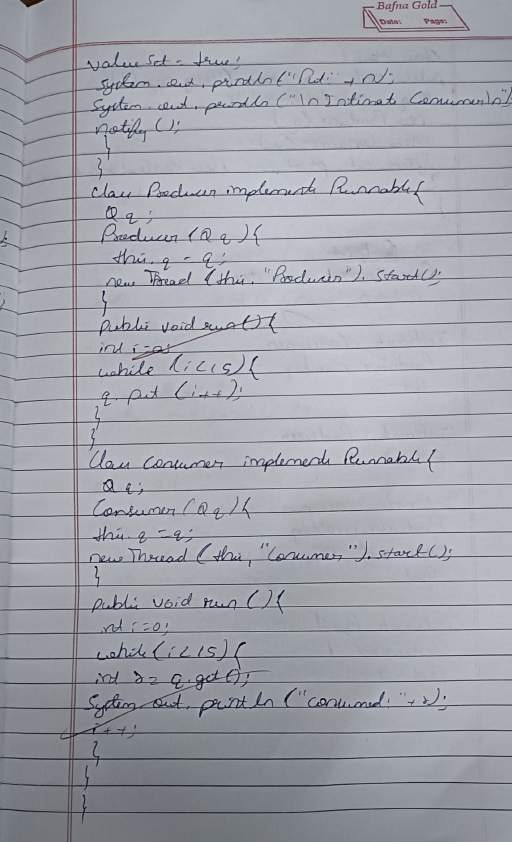 Bafna Gold
Date: Page:
valueSet = true;
System.out.println("Put: " + n);
System.out.println("\n Intimate Consumer\n");
notify();
}
}
class Producer implements Runnable{
Q q;
Producer(Q q){
this.q = q;
new Thread (this, "Producer").start();
}
public void run(){
int i=0;
while (i<15){
q.put (i++);
}
}
class Consumer implements Runnable{
Q q;
Consumer(Q q){
this.q = q;
new Thread (this, "Consumer").start();
}
public void run(){
int i=0;
while(i<15){
int r = q.get();
System.out.println ("consumed: "+r);
i++;
}
}
}